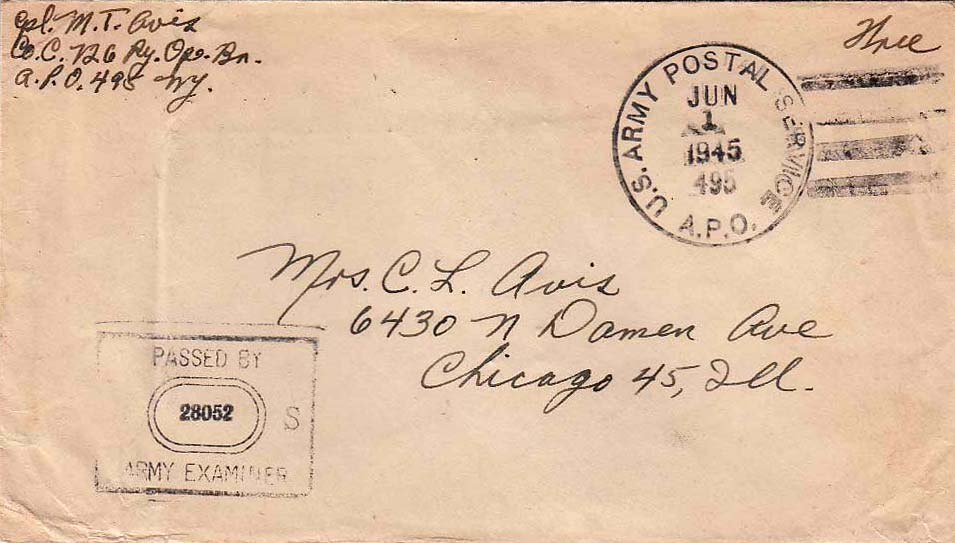 Cpl. M. T. Avis
Co. C. 726 Ry. Op. Bn.
A.P.O. 495 NY.
Free
U.S. ARMY POSTAL SERVICE
JUN
1
1945
495
A.P.O.
Mrs. C. L. Avis
6430 N Damen Ave
Chicago 45, Ill.
PASSED BY
28052 S
ARMY EXAMINER